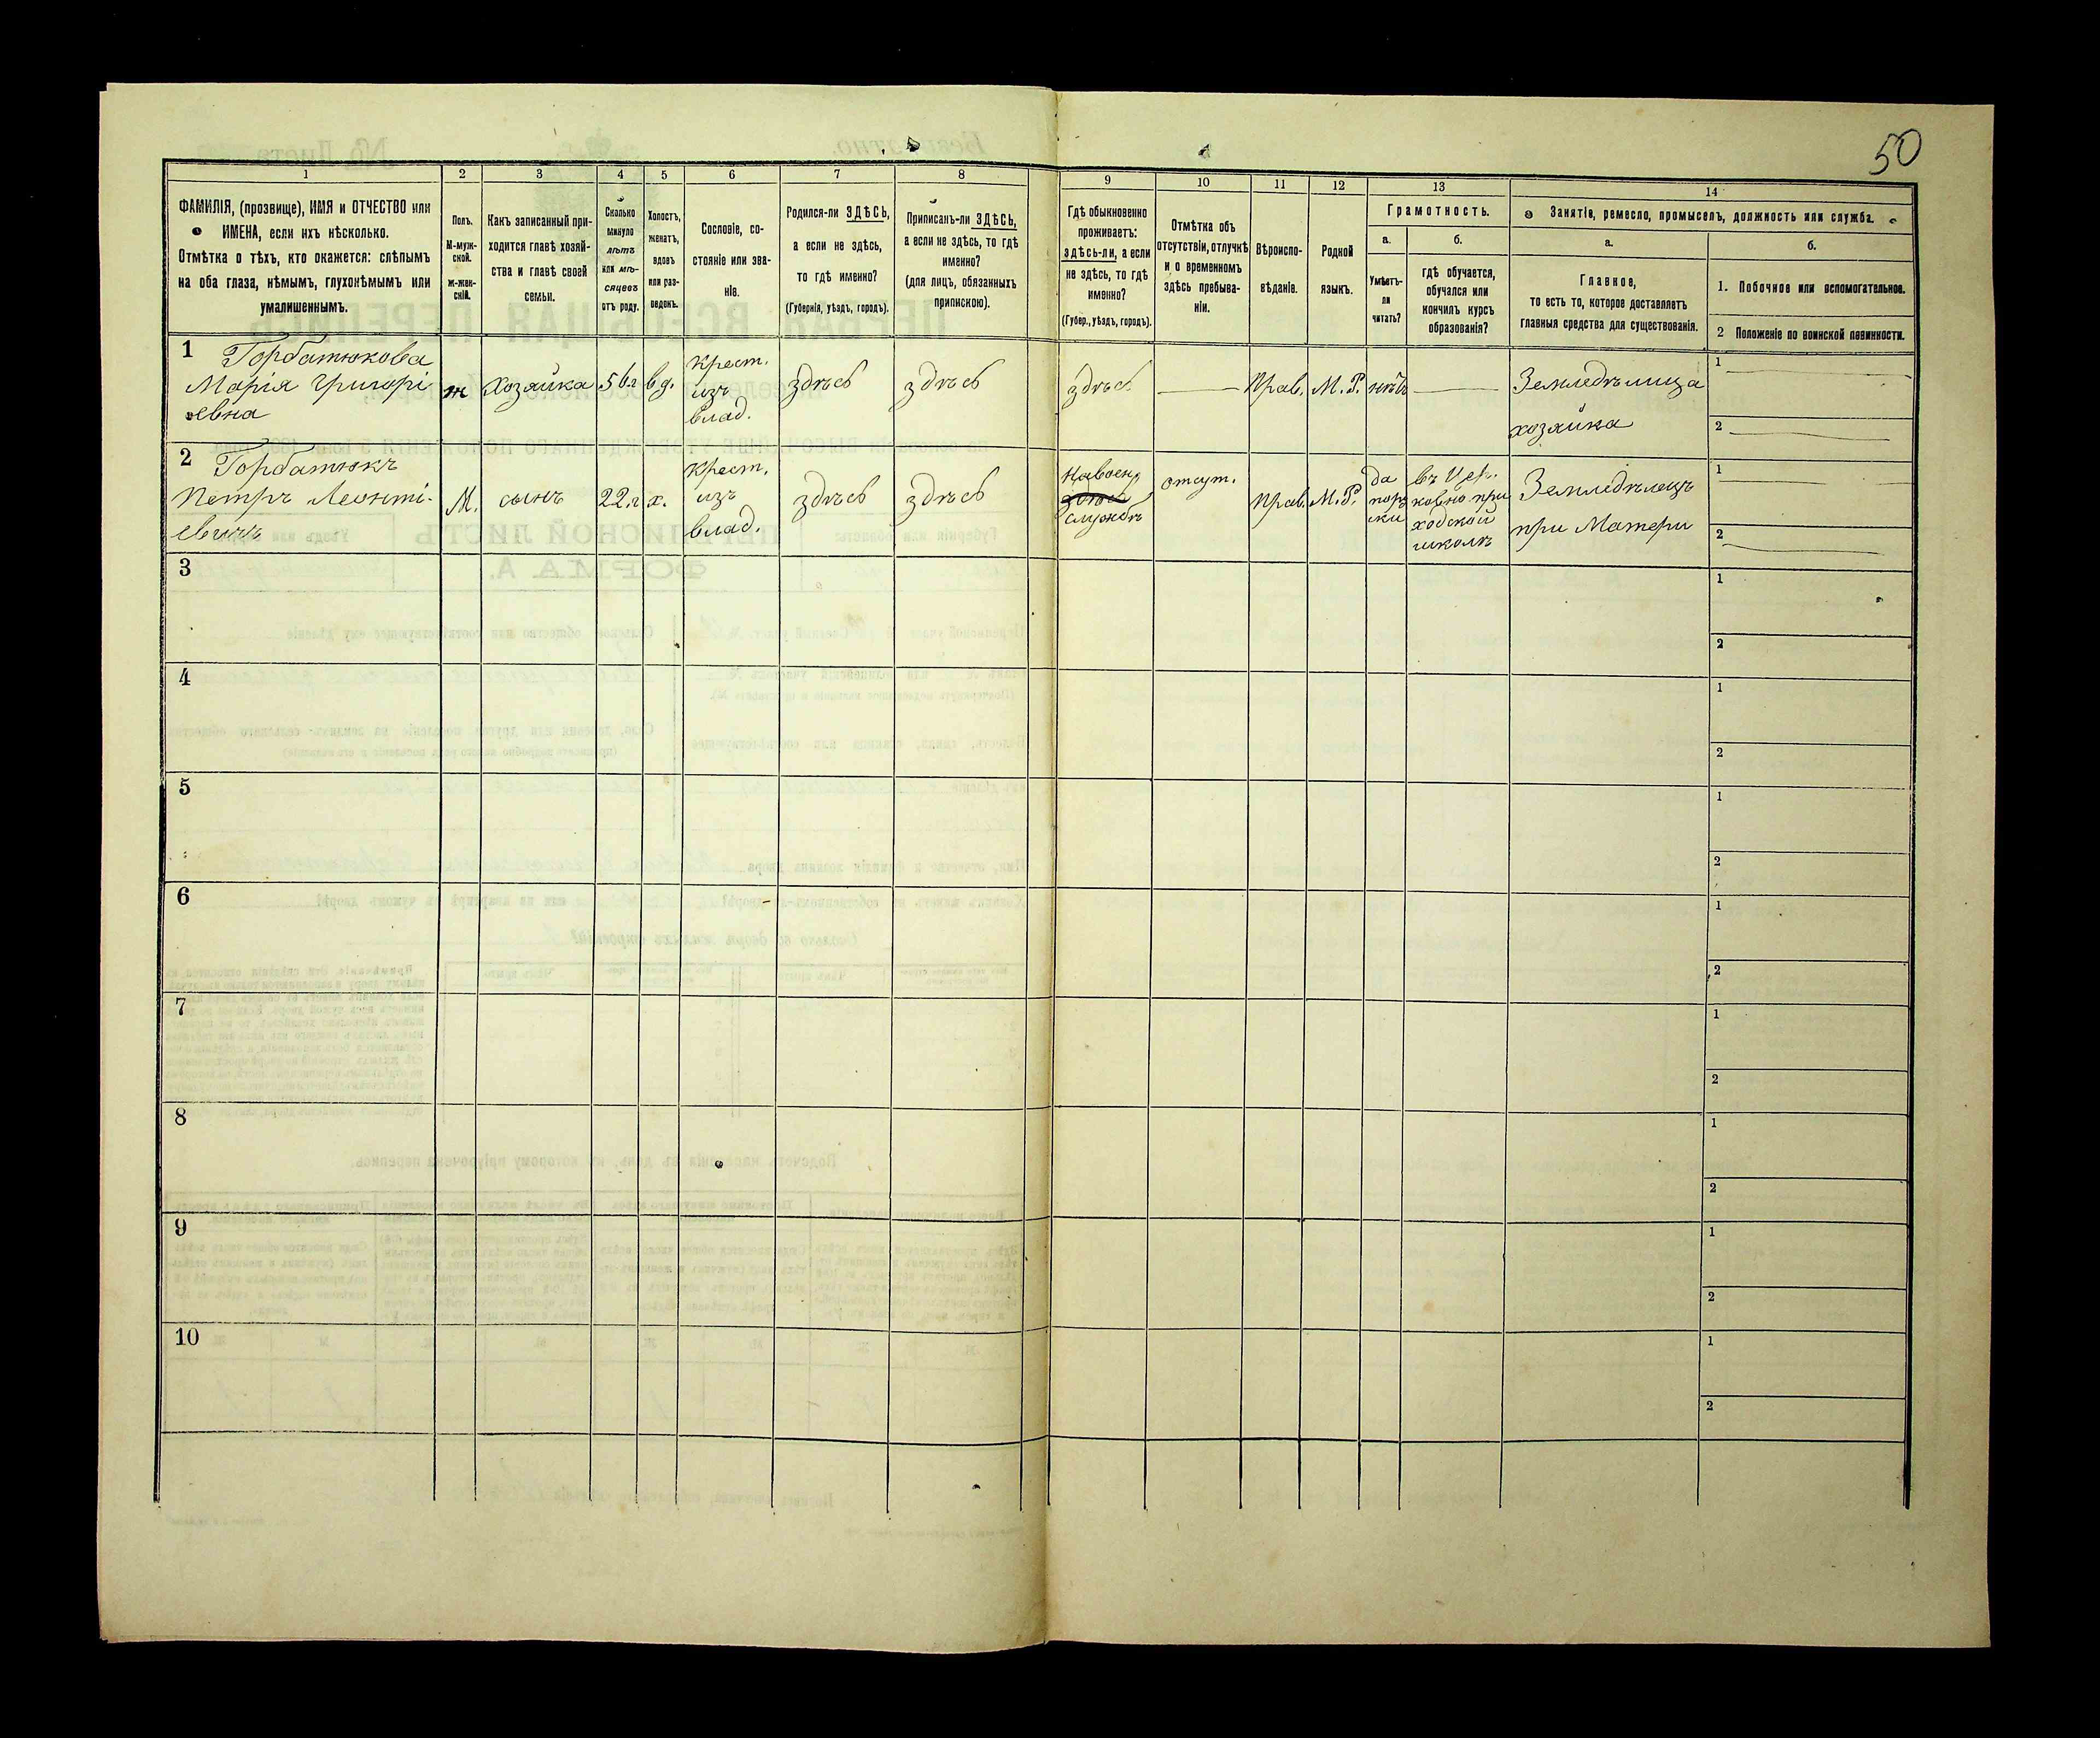 50
1
2
3
4
5
6
7
8
9
10
11
12
13
14
ФАМИЛІЯ, (прозвище), ИМЯ и ОТЧЕСТВО или
ИМЕНА, если ихъ нѣсколько.
Отмѣтка о тѣхъ, кто окажется: слѣпымъ
на оба глаза, нѣмымъ, глухонѣмымъ или
умалишеннымъ.
Полъ.
М-муж-
ской.
ж-жен-
скій.
Какъ записанный при-
ходится главѣ хозяй-
ства и главѣ своей
семьи.
Сколько
минуло
лѣтъ
или мѣ-
сяцевъ
отъ роду.
Холостъ,
женатъ,
вдовъ
или раз-
веденъ.
Сословіе, со-
стояніе или зва-
ніе.
Родился-ли ЗДѢСЬ,
а если не здѣсь,
то гдѣ именно?
(Губернія, уѣздъ, городъ).
Приписанъ-ли ЗДѢСЬ,
а если не здѣсь, то гдѣ
именно?
(для лицъ, обязанныхъ
припискою).
Гдѣ обыкновенно
проживаетъ:
здѣсь-ли, а если
не здѣсь, то гдѣ
именно?
(Губер., уѣздъ, городъ).
Отмѣтка объ
отсутствіи, отлучкѣ
и о временномъ
здѣсь пребыва-
ніи.
Вѣроиспо-
вѣданіе.
Родной
языкъ.
Грамотность.
а.
Умѣетъ-
ли
читать?
б.
гдѣ обучается,
обучался или
кончилъ курсъ
образованія?
Занятіе, ремесло, промыселъ, должность или служба.
а.
Главное,
то есть то, которое доставляетъ
главныя средства для существованія.
б.
1. Побочное или вспомогательное.
2 Положеніе по воинской повинности.
1 Горбатюкова
Марія Григорі
евна
ж
хозяйка
56 л
вд.
крест.
изъ
влад.
здѣсь
здѣсь
здѣсь
—
Прав.
М. Р.
нѣтъ
—
Земледѣлица
хозяйка
1
2
2 Горбатюкъ
Петръ Леонті-
евичъ
М.
сынъ
22 л
х.
крест.
изъ
влад.
здѣсь
здѣсь
На воен.
здѣсь
службѣ
отсут.
Прав.
М. Р.
да
по р
ски
въ Цер.
ковно при
ходской
школѣ
Земледѣлецъ
при Матери
1
2
3
1
2
4
1
2
5
1
2
6
1
2
7
1
2
8
1
2
9
1
2
10
1
2